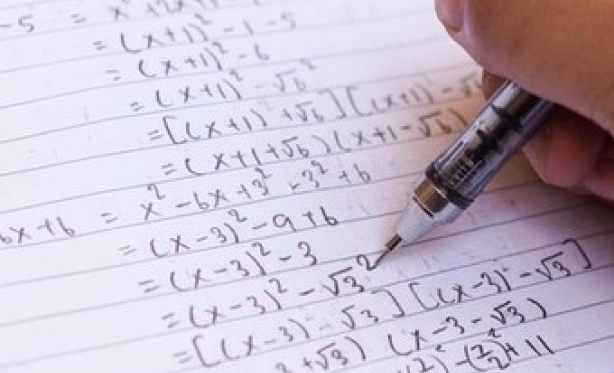 -5 = x² + 2x + 1
= (x+1)² - 1 - 5
= (x+1)² - 6
= (x+1)² - √6²
= [(x+1) + √6] [(x+1) - √6
= (x+1+√6)(x+1-√6)
6x+6 = x² - 6x + 3² - 3² + 6
= (x-3)² - 9 + 6
= (x-3)² - 3
= (x-3)² - √3²
= [(x-3) - √3] [(x-3) - √3]
3+√3) (x-3-√3)
+ 11